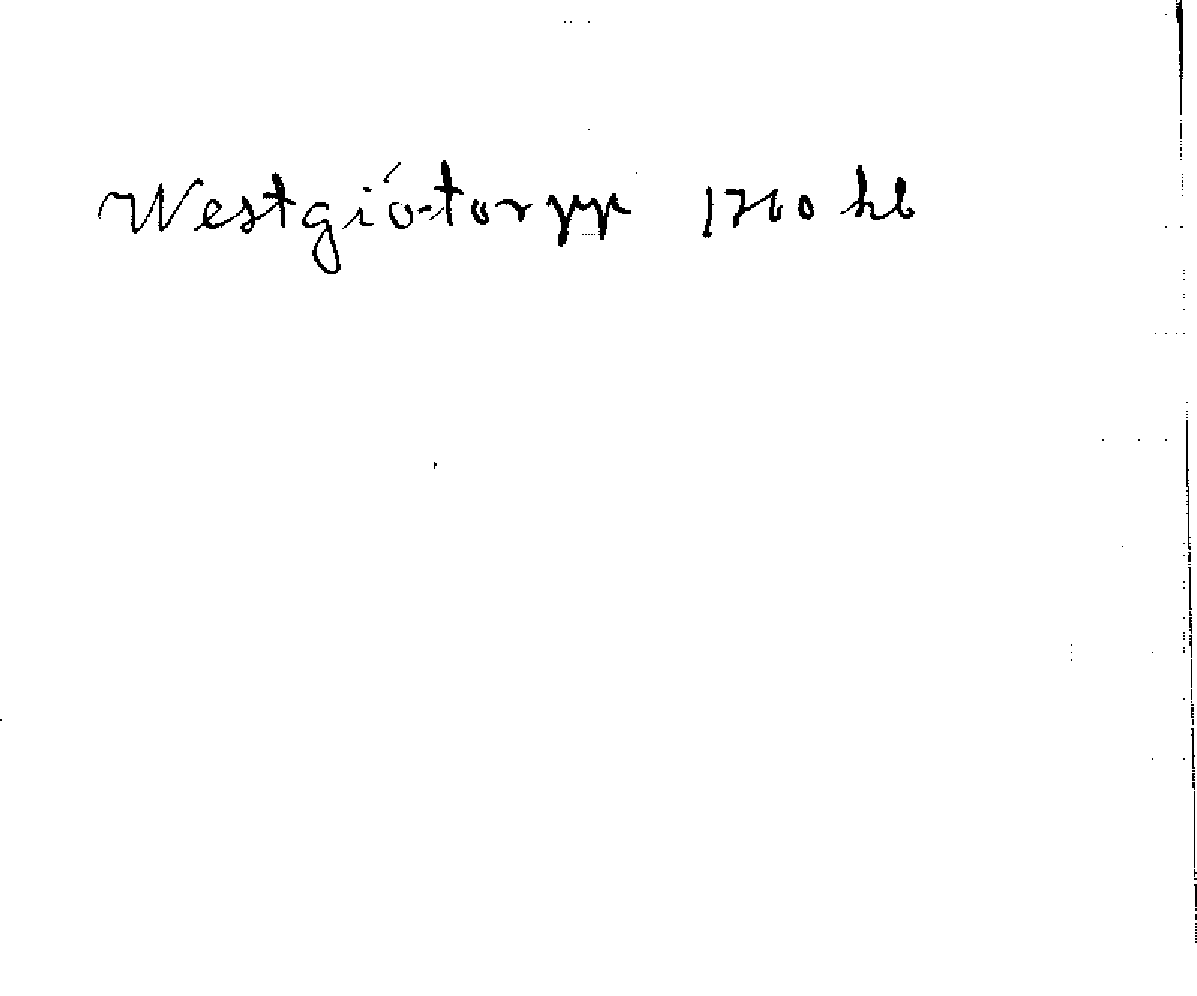 Westgió-torpp 1760 hl